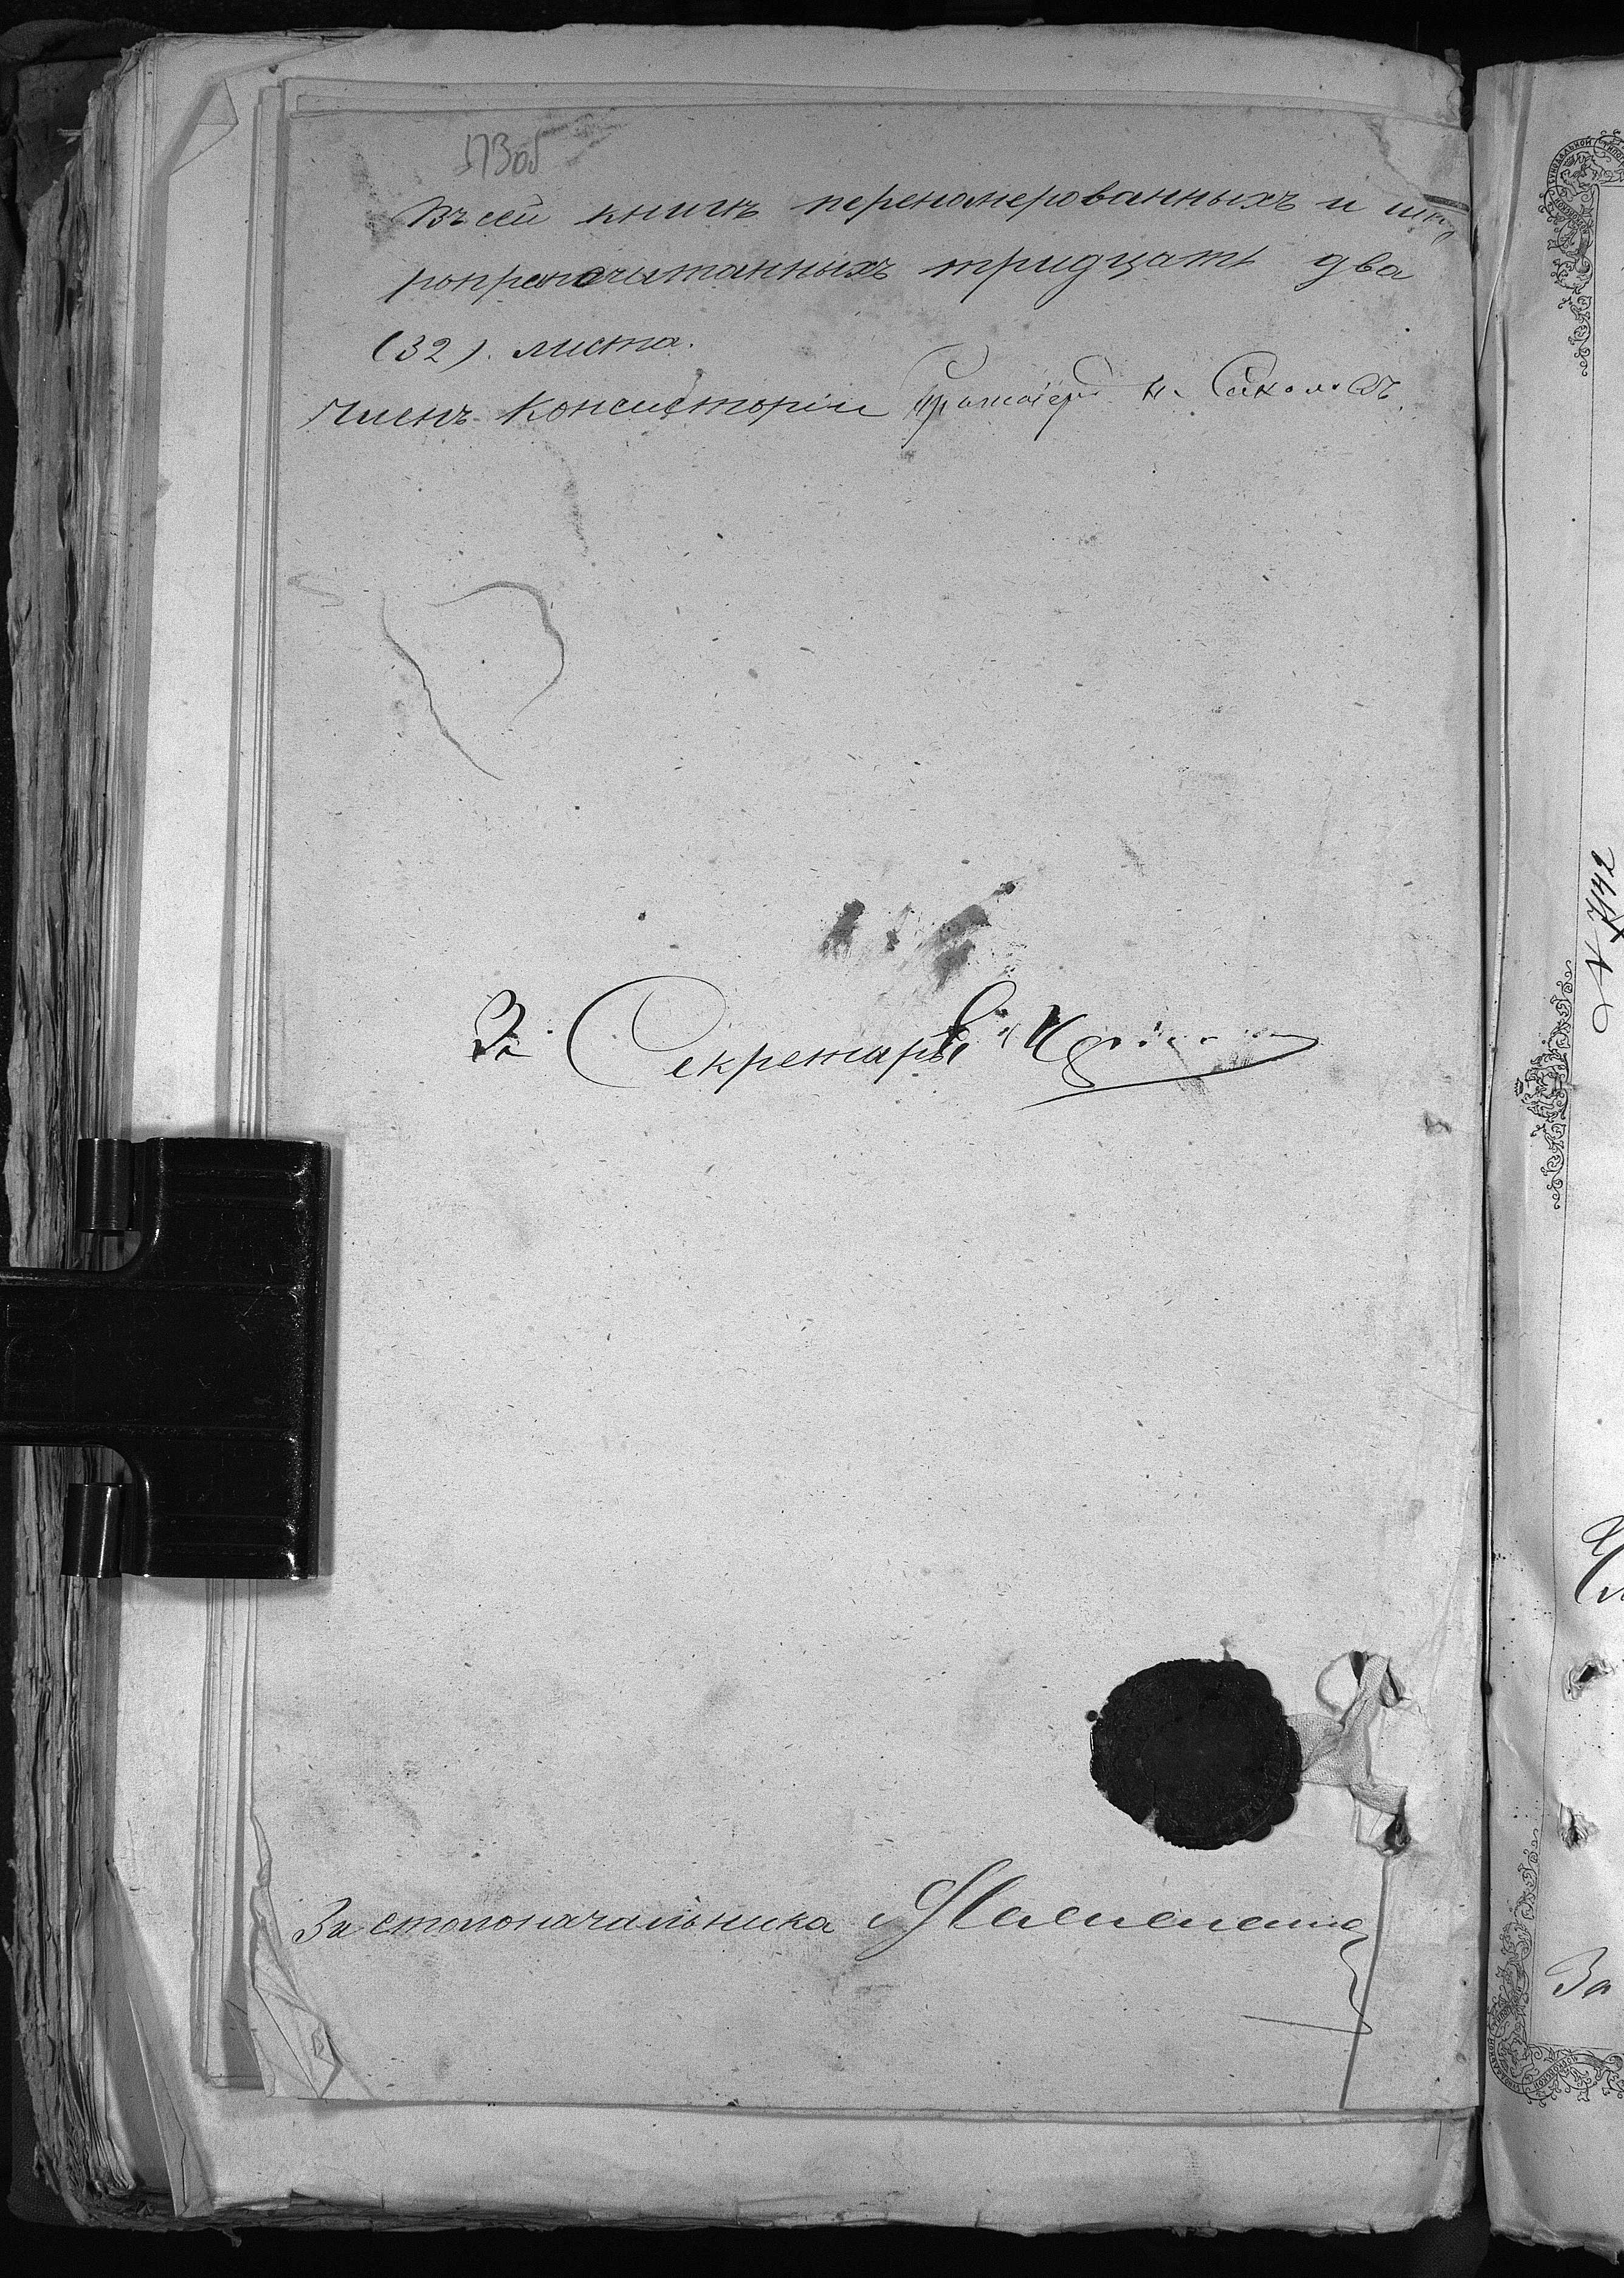 173 об
Въ сей книгѣ переномерованныхъ и шну
ропрепечатанныхъ тридцать два
(32). листа.
Членъ Консисторіи Протоіерей Н. Соколовъ.
За Секретаря
За столоначальника
N 7142
За